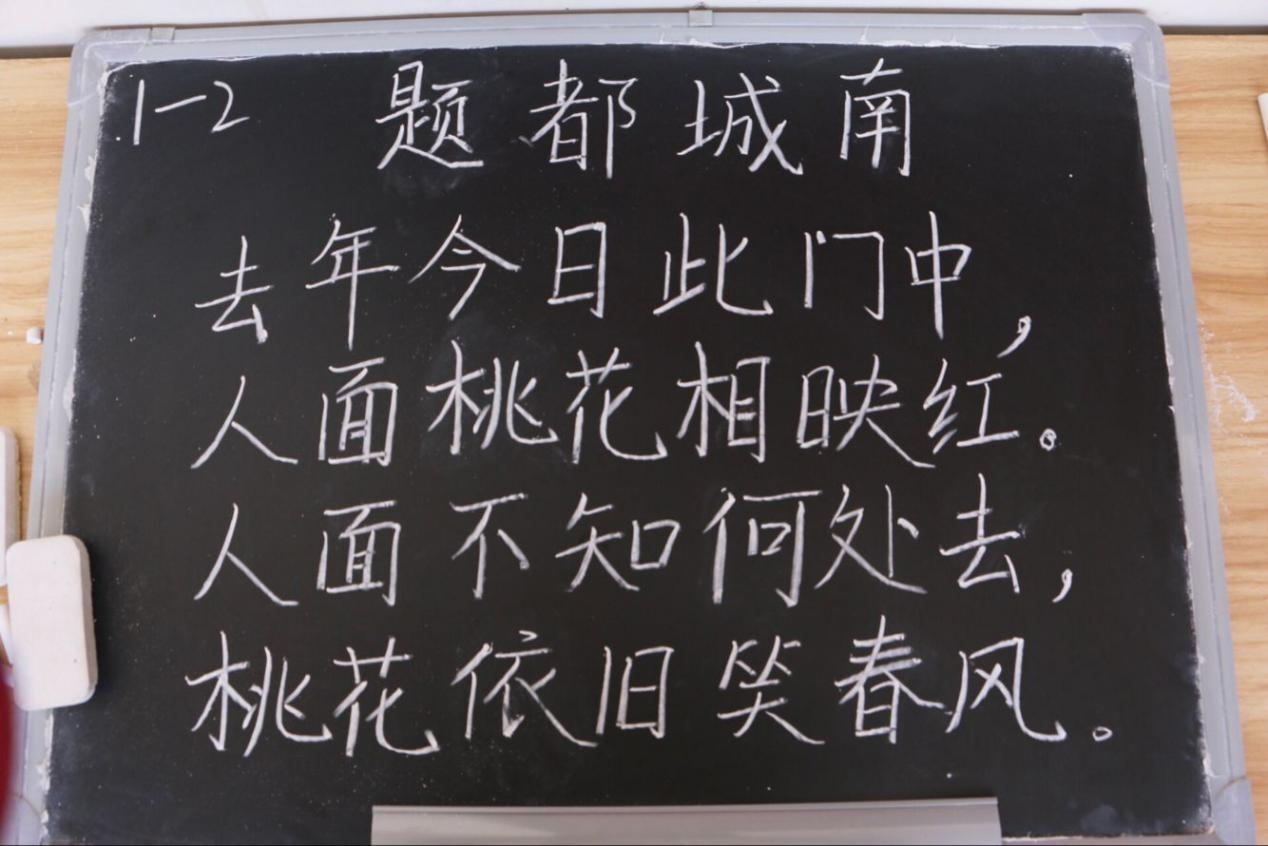 1-2 题都城南
去年今日此门中,
人面桃花相映红。
人面不知何处去,
桃花依旧笑春风。